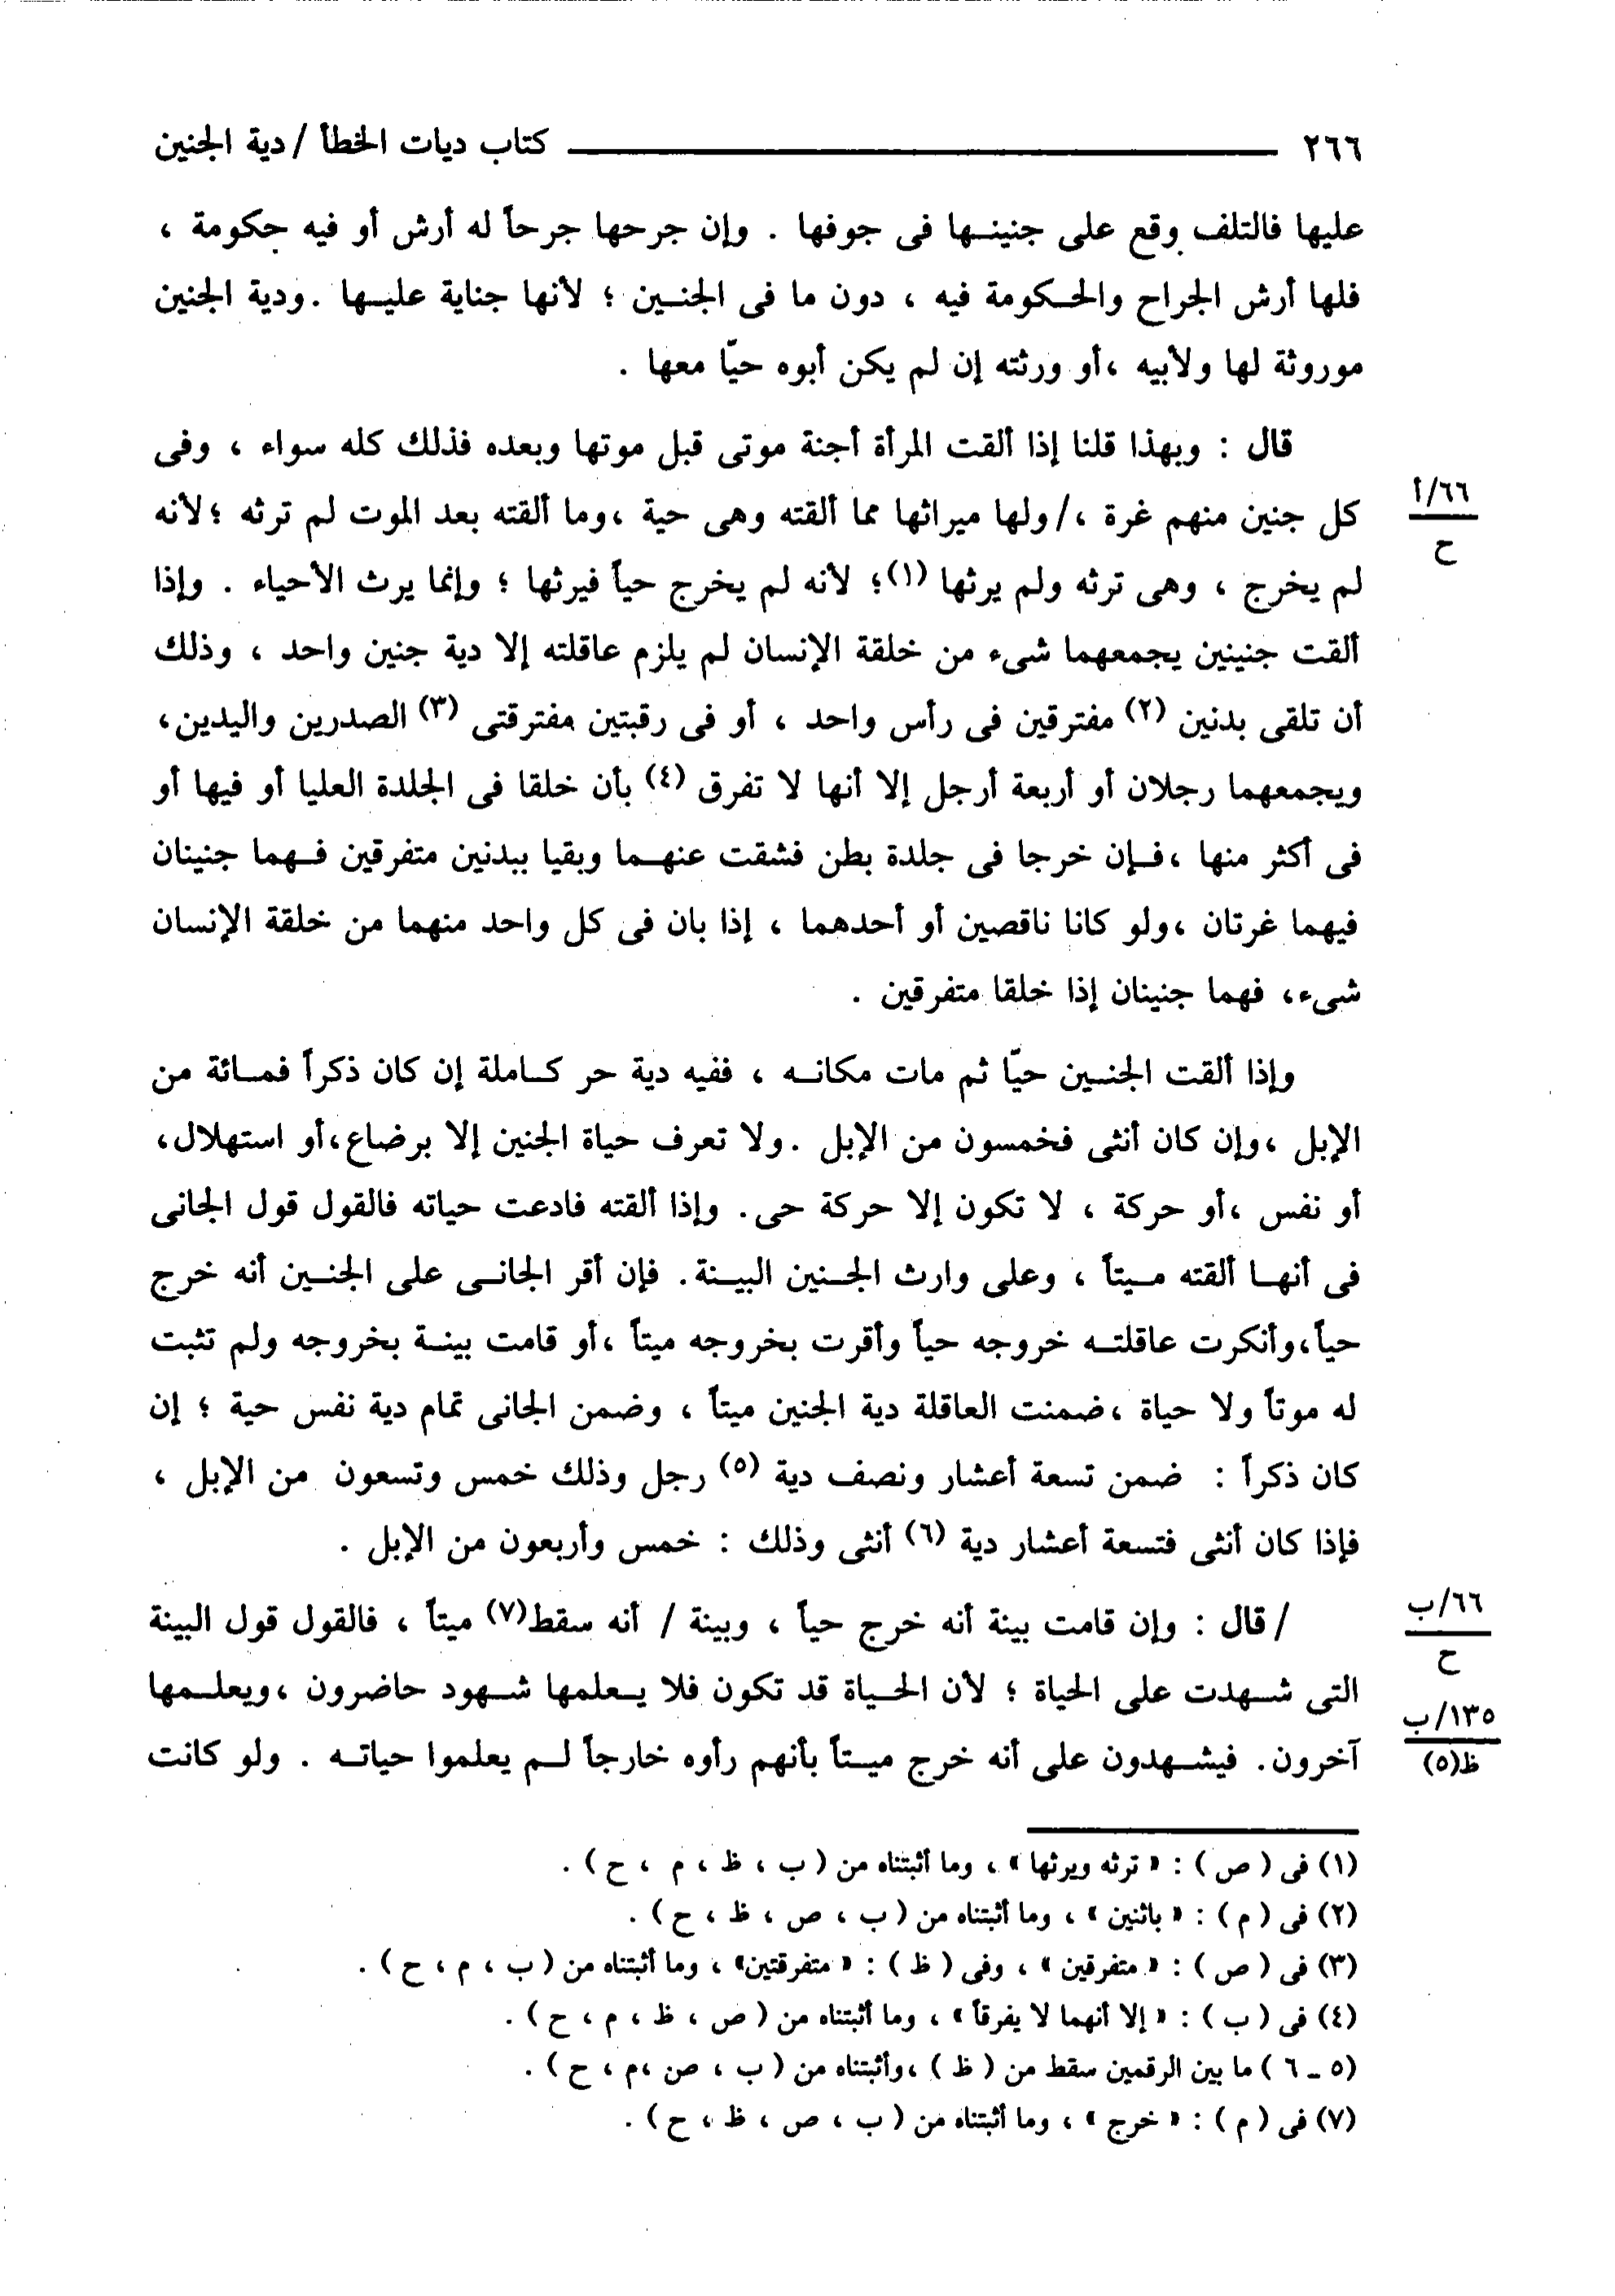 ٢٦٦ كتاب ديات الخطأ / دية الجنين
عليها فالتلف وقع على جنينها فى جوفها . وإن جرحها جرحاً له أرش أو فيه حكومة ،
فلها أرش الجراح والحكومة فيه ، دون ما فى الجنين ؛ لأنها جناية عليها . ودية الجنين
موروثة لها ولأبيه ، أو ورثته إن لم يكن أبوه حيّا معها .
قال : وبهذا قلنا إذا ألقت المرأة أجنة موتى قبل موتها وبعده فذلك كله سواء ، وفى
كل جنين منهم غرة ، / ولها ميراثها مما ألقته وهى حية ، وما ألقته بعد الموت لم ترثه ؛ لأنه
٦٦/أ
ح
لم يخرج ، وهى ترثه ولم يرثها (١)؛ لأنه لم يخرج حياً فيرثها ؛ وإنما يرث الأحياء . وإذا
ألقت جنينين يجمعهما شىء من خلقة الإنسان لم يلزم عاقلته إلا دية جنين واحد ، وذلك
أن تلقى بدنين (٢) مفترقين فى رأس واحد ، أو فى رقبتين مفترقتى (٣) الصدرين واليدين،
ويجمعهما رجلان أو أربعة أرجل إلا أنها لا تفرق (٤) بأن خلقا فى الجلدة العليا أو فيها أو
فى أكثر منها ، فإن خرجا فى جلدة بطن فشقت عنهما وبقيا ببدنين متفرقين فهما جنينان
فيهما غرتان ، ولو كانا ناقصين أو أحدهما ، إذا بان فى كل واحد منهما من خلقة الإنسان
شىء، فهما جنينان إذا خلقا متفرقين .
وإذا ألقت الجنين حيّا ثم مات مكانه ، ففيه دية حر كاملة إن كان ذكراً فمائة من
الإبل ، وإن كان أنثى فخمسون من الإبل . ولا تعرف حياة الجنين إلا برضاع، أو استهلال،
أو نفس ، أو حركة ، لا تكون إلا حركة حى. وإذا ألقته فادعت حياته فالقول قول الجانى
فى أنها ألقته ميتاً ، وعلى وارث الجنين البينة. فإن أقر الجانى على الجنين أنه خرج
حياً، وأنكرت عاقلته خروجه حياً وأقرت بخروجه ميتاً ، أو قامت بينة بخروجه ولم تثبت
له موتاً ولا حياة ، ضمنت العاقلة دية الجنين ميتاً ، وضمن الجانى تمام دية نفس حية ؛ إن
كان ذكراً : ضمن تسعة أعشار ونصف دية (٥) رجل وذلك خمس وتسعون من الإبل ،
فإذا كان أنثى فتسعة أعشار دية (٦) أنثى وذلك : خمس وأربعون من الإبل .
/ قال : وإن قامت بينة أنه خرج حياً ، وبينة / أنه سقط(٧) ميتاً ، فالقول قول البينة
٦٦/ب
ح
التى شهدت على الحياة ؛ لأن الحياة قد تكون فلا يعلمها شهود حاضرون ، ويعلمها
١٣٥/ب
ظ(٥)
آخرون. فيشهدون على أنه خرج ميتاً بأنهم رأوه خارجاً لم يعلموا حياته . ولو كانت
(١) فى ( ص ) : « ترثه ويرثها » ، وما أثبتناه من ( ب ، ظ ، م ، ح ) .
(٢) فى ( م ) : « باثنين » ، وما أثبتناه من ( ب ، ص ، ظ ، ح ) .
(٣) فى ( ص ) : « متفرقين » ، وفى ( ظ ) : « متفرقتين» ، وما أثبتناه من ( ب ، م ، ح ) .
(٤) فى ( ب ) : « إلا أنهما لا يفرقاً » ، وما أثبتناه من ( ص ، ظ ، م ، ح ) .
(٥ ـ ٦ ) ما بين الرقمين سقط من ( ظ ) ، وأثبتناه من ( ب ، ص ، م ، ح ) .
(٧) فى ( م ) : « خرج » ، وما أثبتناه من ( ب ، ص ، ظ ، ح ) .